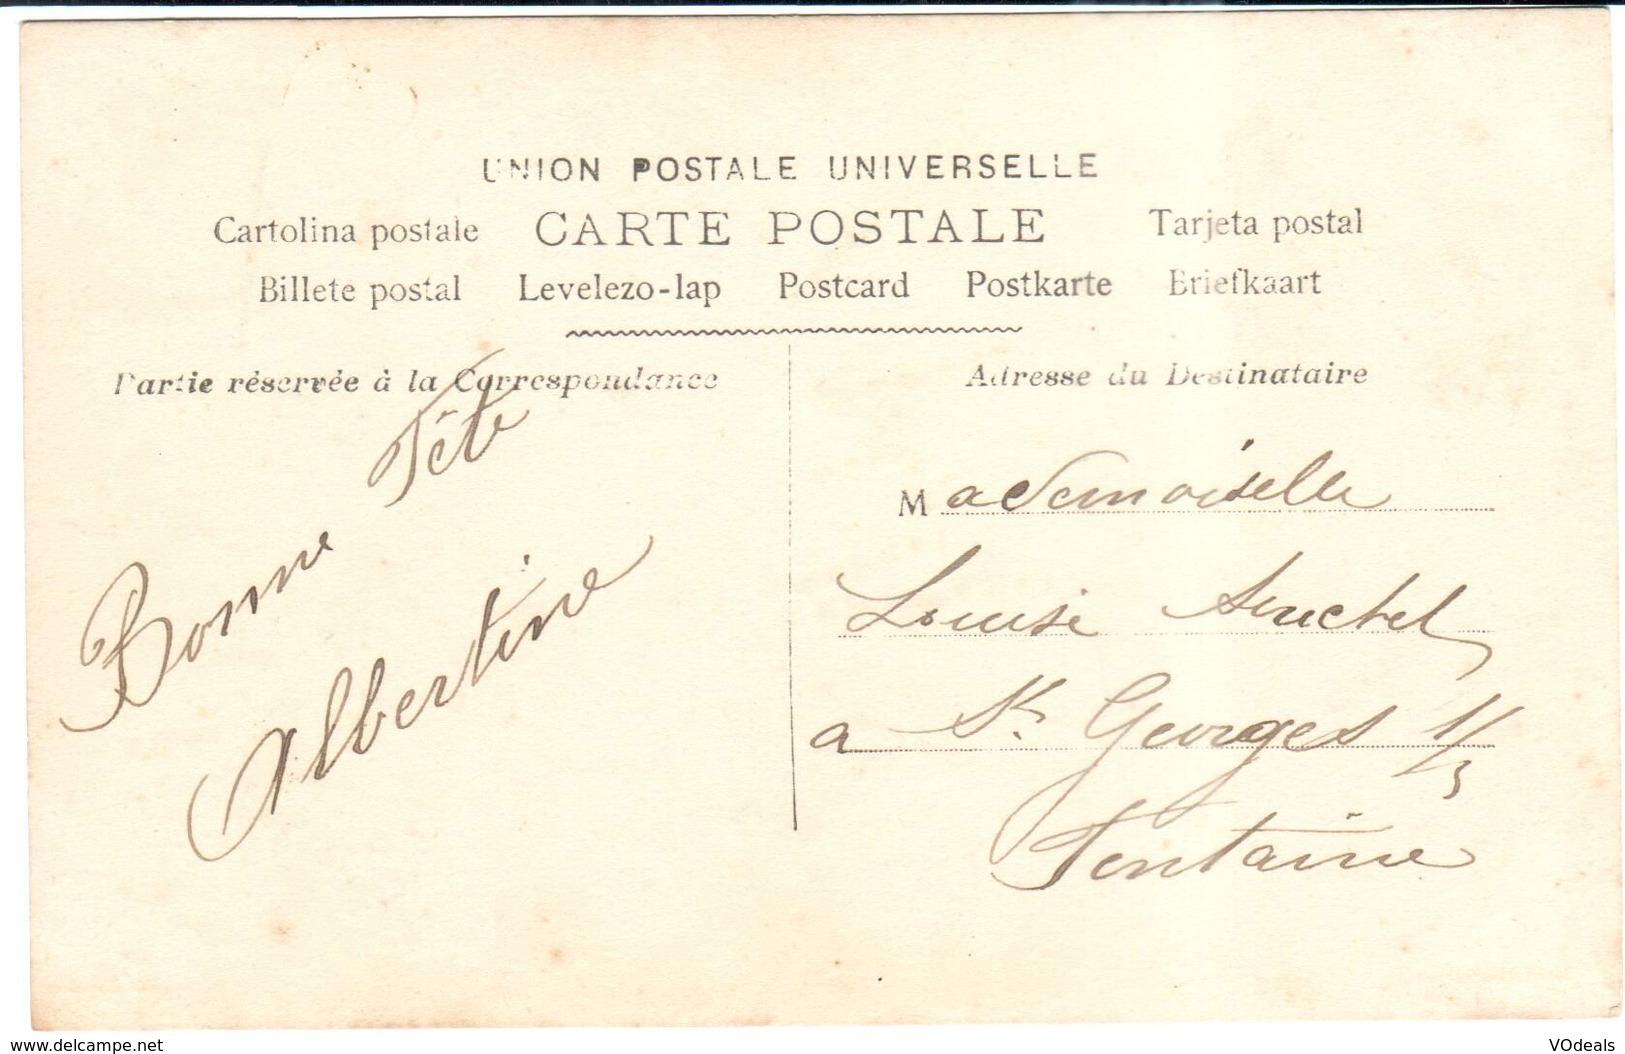 UNION POSTALE UNIVERSELLE
Cartolina postale CARTE POSTALE Tarjeta postal
Billete postal Levelezo-lap Postcard Postkarte Briefkaart
Partie réservée à la Correspondance
Adresse du Destinataire
Bonne Fête
Albertine
Mademoiselle
Louise
a St Georges s/
Fontaine
www.delcampe.net
VOdeals